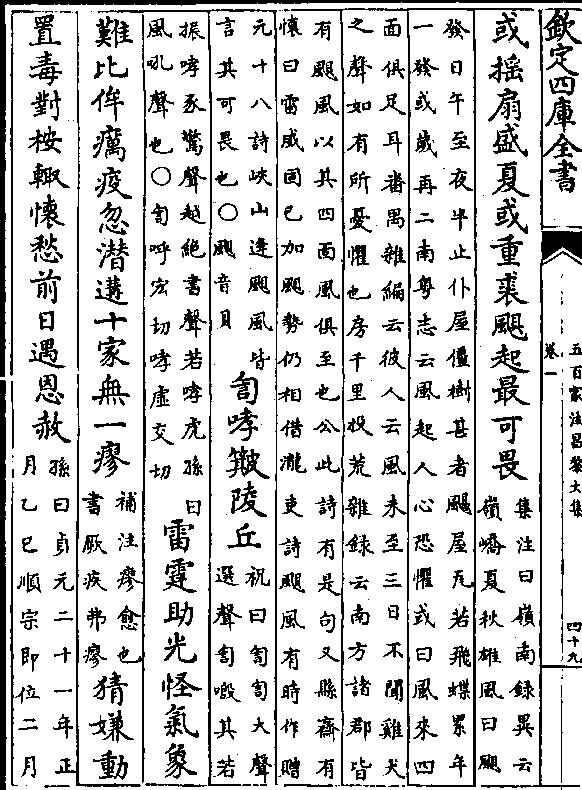 欽定四庫全書
五百家注昌黎文集
卷一
四十九
或摇扇盛夏或重裘颶起最可畏
集注曰嶺南録異云
嶺嶠夏秋雄風曰颶
發日午至夜半止仆屋僵樹甚者颶屋瓦若飛蝶累年
一發或歲再二南粤志云風起人心恐懼或曰風來四
面俱足耳番禺雜編云彼人云風未至三日不聞雞犬
之聲如有所憂懼也房千里投荒雜録云南方諸郡皆
有颶風以其四面風俱至也公此詩有是句又縣齋有
懷曰雷威固已加颶勢仍相借瀧吏詩颶風有時作贈
元十八詩峽山逢颶風皆
言其可畏也○颶音具
訇哮簸陵丘
祝曰訇訇大聲
選聲訇其若
振哮豕驚聲越絶書聲若哮虎孫曰
風吼聲也○訇呼宏切哮虛交切
雷霆助光怪氣象
難比侔癘疫忽潛遘十家無一瘳
補注瘳愈也
書厥疾弗瘳
猜嫌動
置毒對桉輒懷愁前日遇恩赦
孫曰貞元二十一年正
月乙巳順宗即位二月